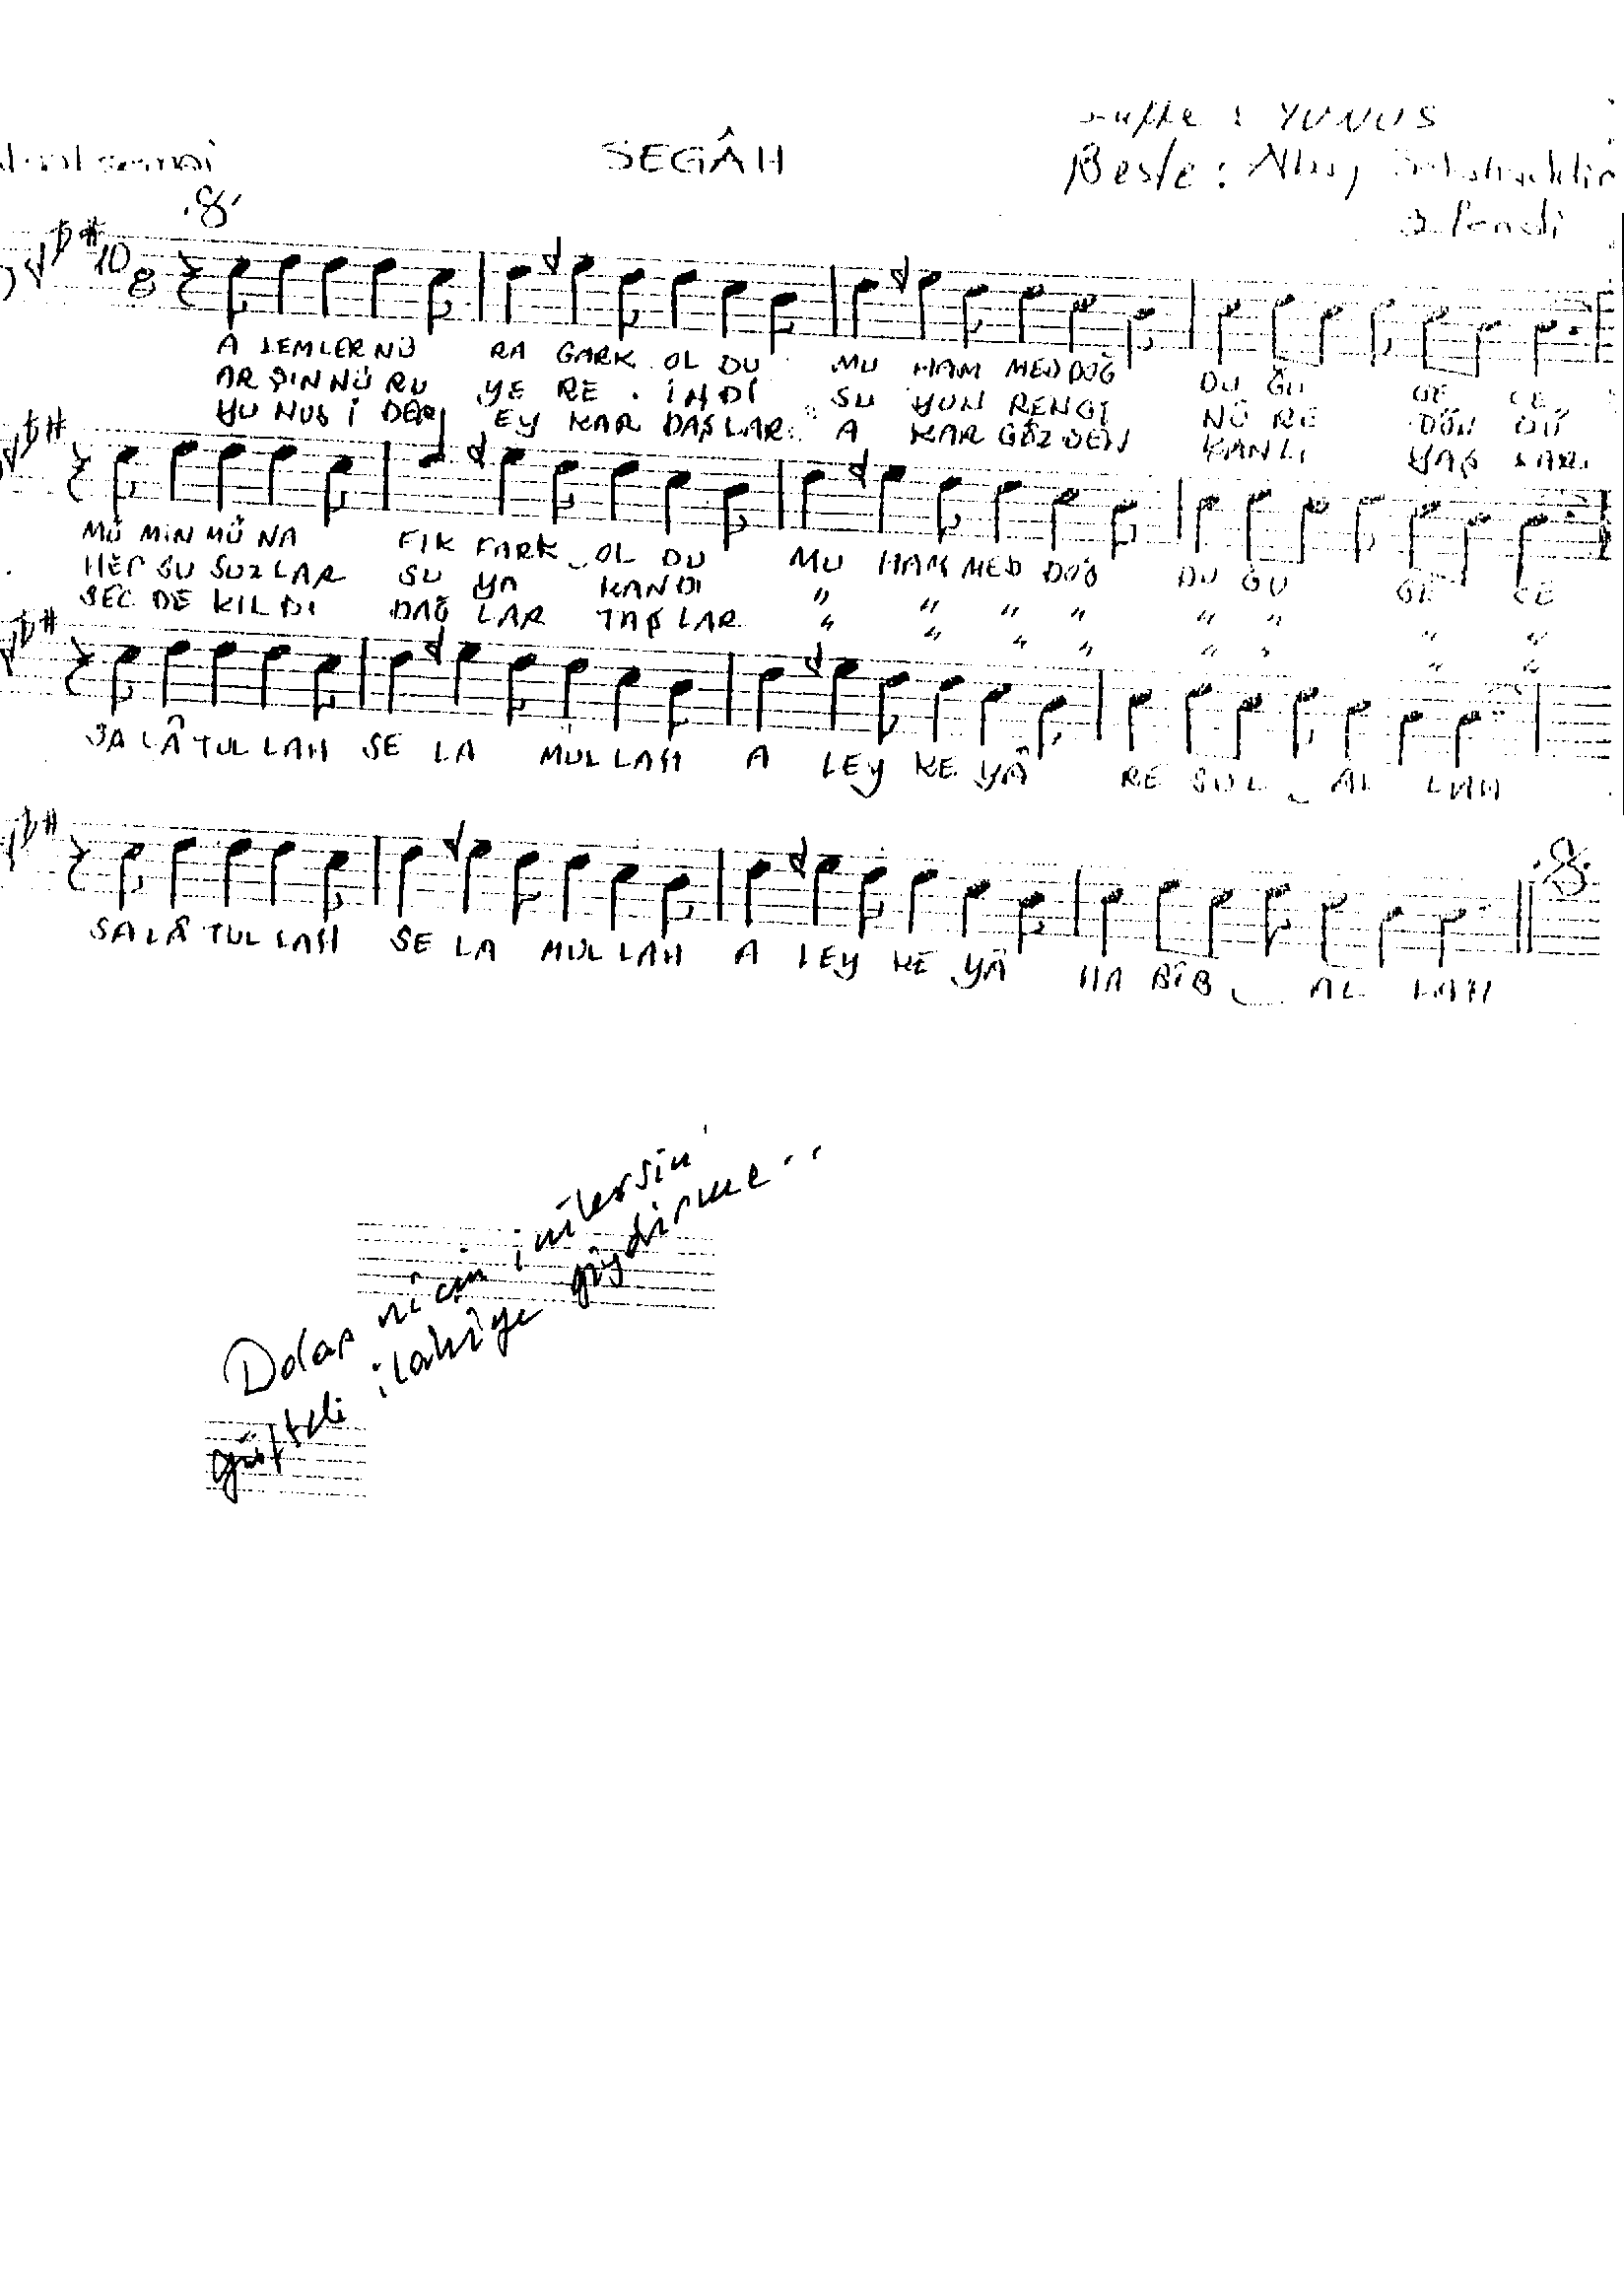 SEGÂH
Güfte : YUNUS
Beste :
10
8
A LEMLER NÛ RA GARK OL DU MU HAM MED DOĞ DU ĞU GE CE
AR ŞIN NÛ RU YE RE İN DÎ SU YUN RENGİ NÛ RE DÖN DÜ
YU NUS İ DER EY KAR DAŞ LAR A KAR GÖZ DEN KANLI YAŞ LARI
MÜ MİN MÜ NA FIK FARK OL DU MU HAM MED DOĞ DU ĞU GE CE
HEP SU SUZ LAR SU YA KAN DI " " " " " " " "
SEC DE KIL DI DAĞ LAR TAŞ LAR " " " " " " " "
SA LÂ TUL LAH SE LA MUL LAH A LEY KE YÂ RE SUL AL LAH
SA LÂ TUL LAH SE LA MUL LAH A LEY KE YÂ HA BÎB AL LAH
Dolap niçin inilersin
güfteli ilahiye giydirme..